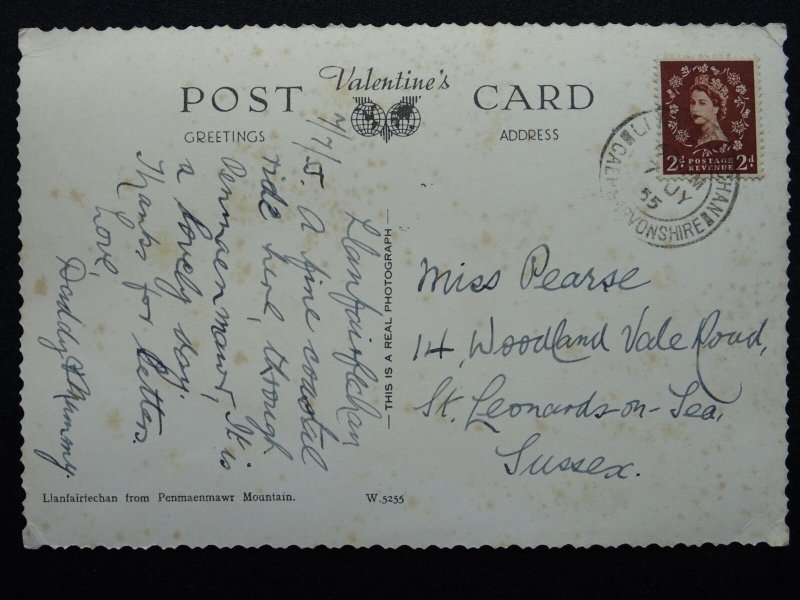 POST Valentine's CARD
GREETINGS ADDRESS
Llanfairfechan
7/7/55. A fine coastal
ride here, through
Penmaenmawr, It is
a lovely day.
Thanks for letters.
Love,
Daddy & Mummy.
THIS IS A REAL PHOTOGRAPH
2d POSTAGE REVENUE 2d
CAERNARVONSHIRE
JY
55
Miss Pearse
14, Woodland Vale Road,
St. Leonards-on-Sea,
Sussex.
Llanfairfechan from Penmaenmawr Mountain. W.5255